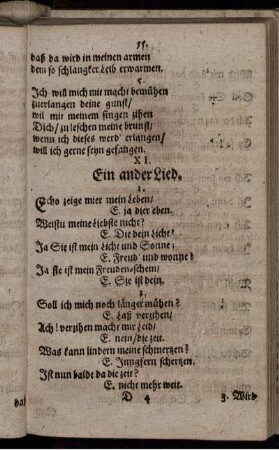 55.
daß da wird in meinen armen
dem so schlangker Leib erwarmen.
5.
Ich will mich mit macht bemühen
zuerlangen deine gunst/
wil mir meinem singen zihen
Dich/ zu leschen meine brunst/
wenn ich dieses werd' erlangen/
will ich gerne seyn gefangen.
XI.
Ein ander Lied.
1.
Echo zeige mier mein Leben/
E. ja dier eben.
Weistu meine Liebste nicht?
E. Die dein Licht!
Ja Sie ist mein Licht und Sonne;
E. Freud' und wonne?
Ja sie ist mein Freudenschein/
E. Sie ist dein.
2.
Soll ich mich noch länger mühen?
E. Laß verzihen/
Ach! verzihen macht mir Leid/
E. nein/ die zeit.
Was kann lindern meine schmertzen?
E. Jungfern schertzen.
Ist nun balde da die zeit?
E. nicht mehr weit.
D 4
3. Wird